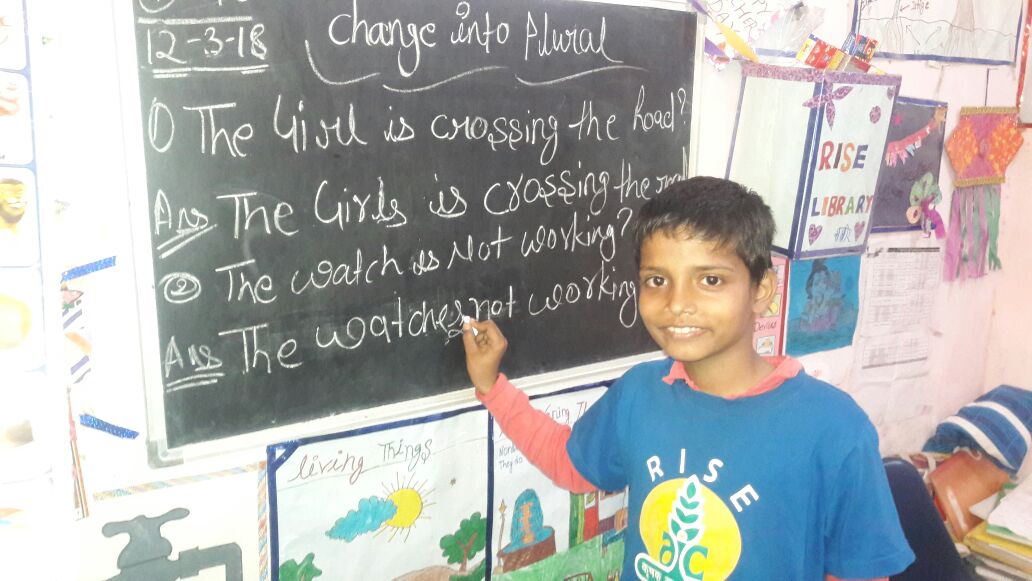 12-3-18
change into Plural
① The Girl is crossing the Road?
Ans The Girls is crossing the
② The watch is Not working?
Ans The watches not working
RISE
LIBRARY
living Things
RISE